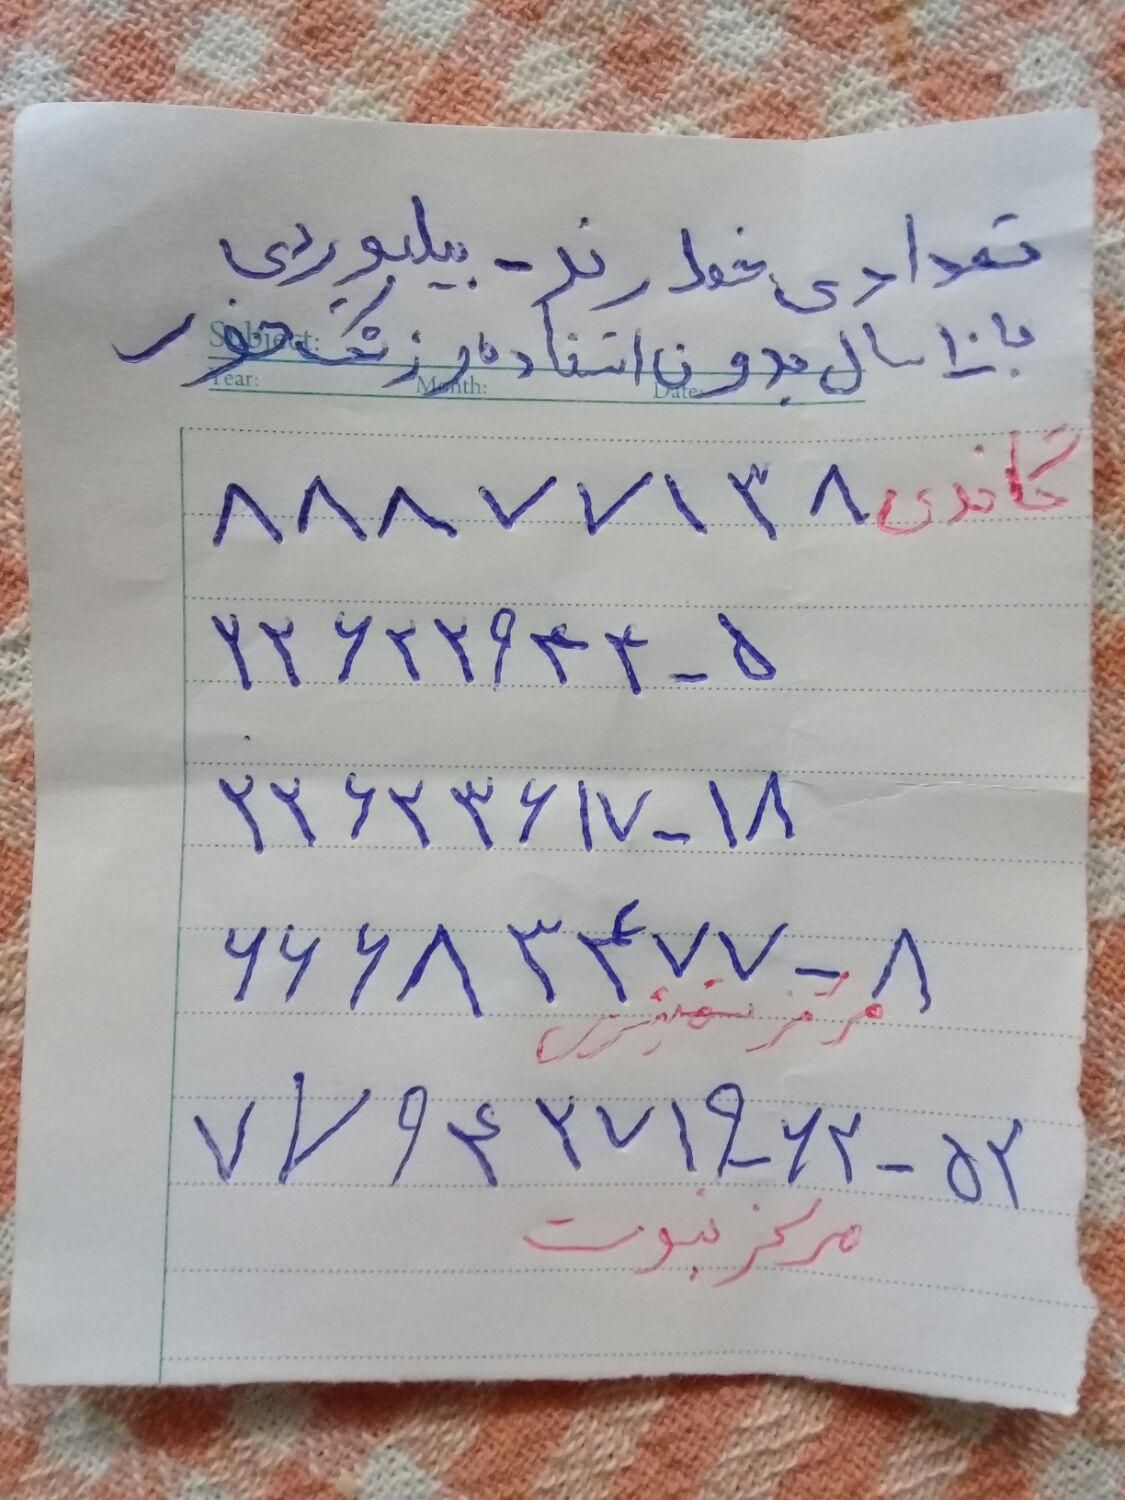 تعدادی خط رند - بیلبوردی
با ۱۰ سال بدون استفاده و زنگ خور
Subject:
Year: Month: Date:
۸۸۸۷۷۱۳۸ گاندی
۲۲۶۲۲۹۴۴-۵
۲۲۶۲۳۶۱۷-۱۸
۶۶۶۸۳۴۷۷-۸
مرکز
۷۷۹۴۲۷۱۹-۶۲-۵۲
مرکز نبوت